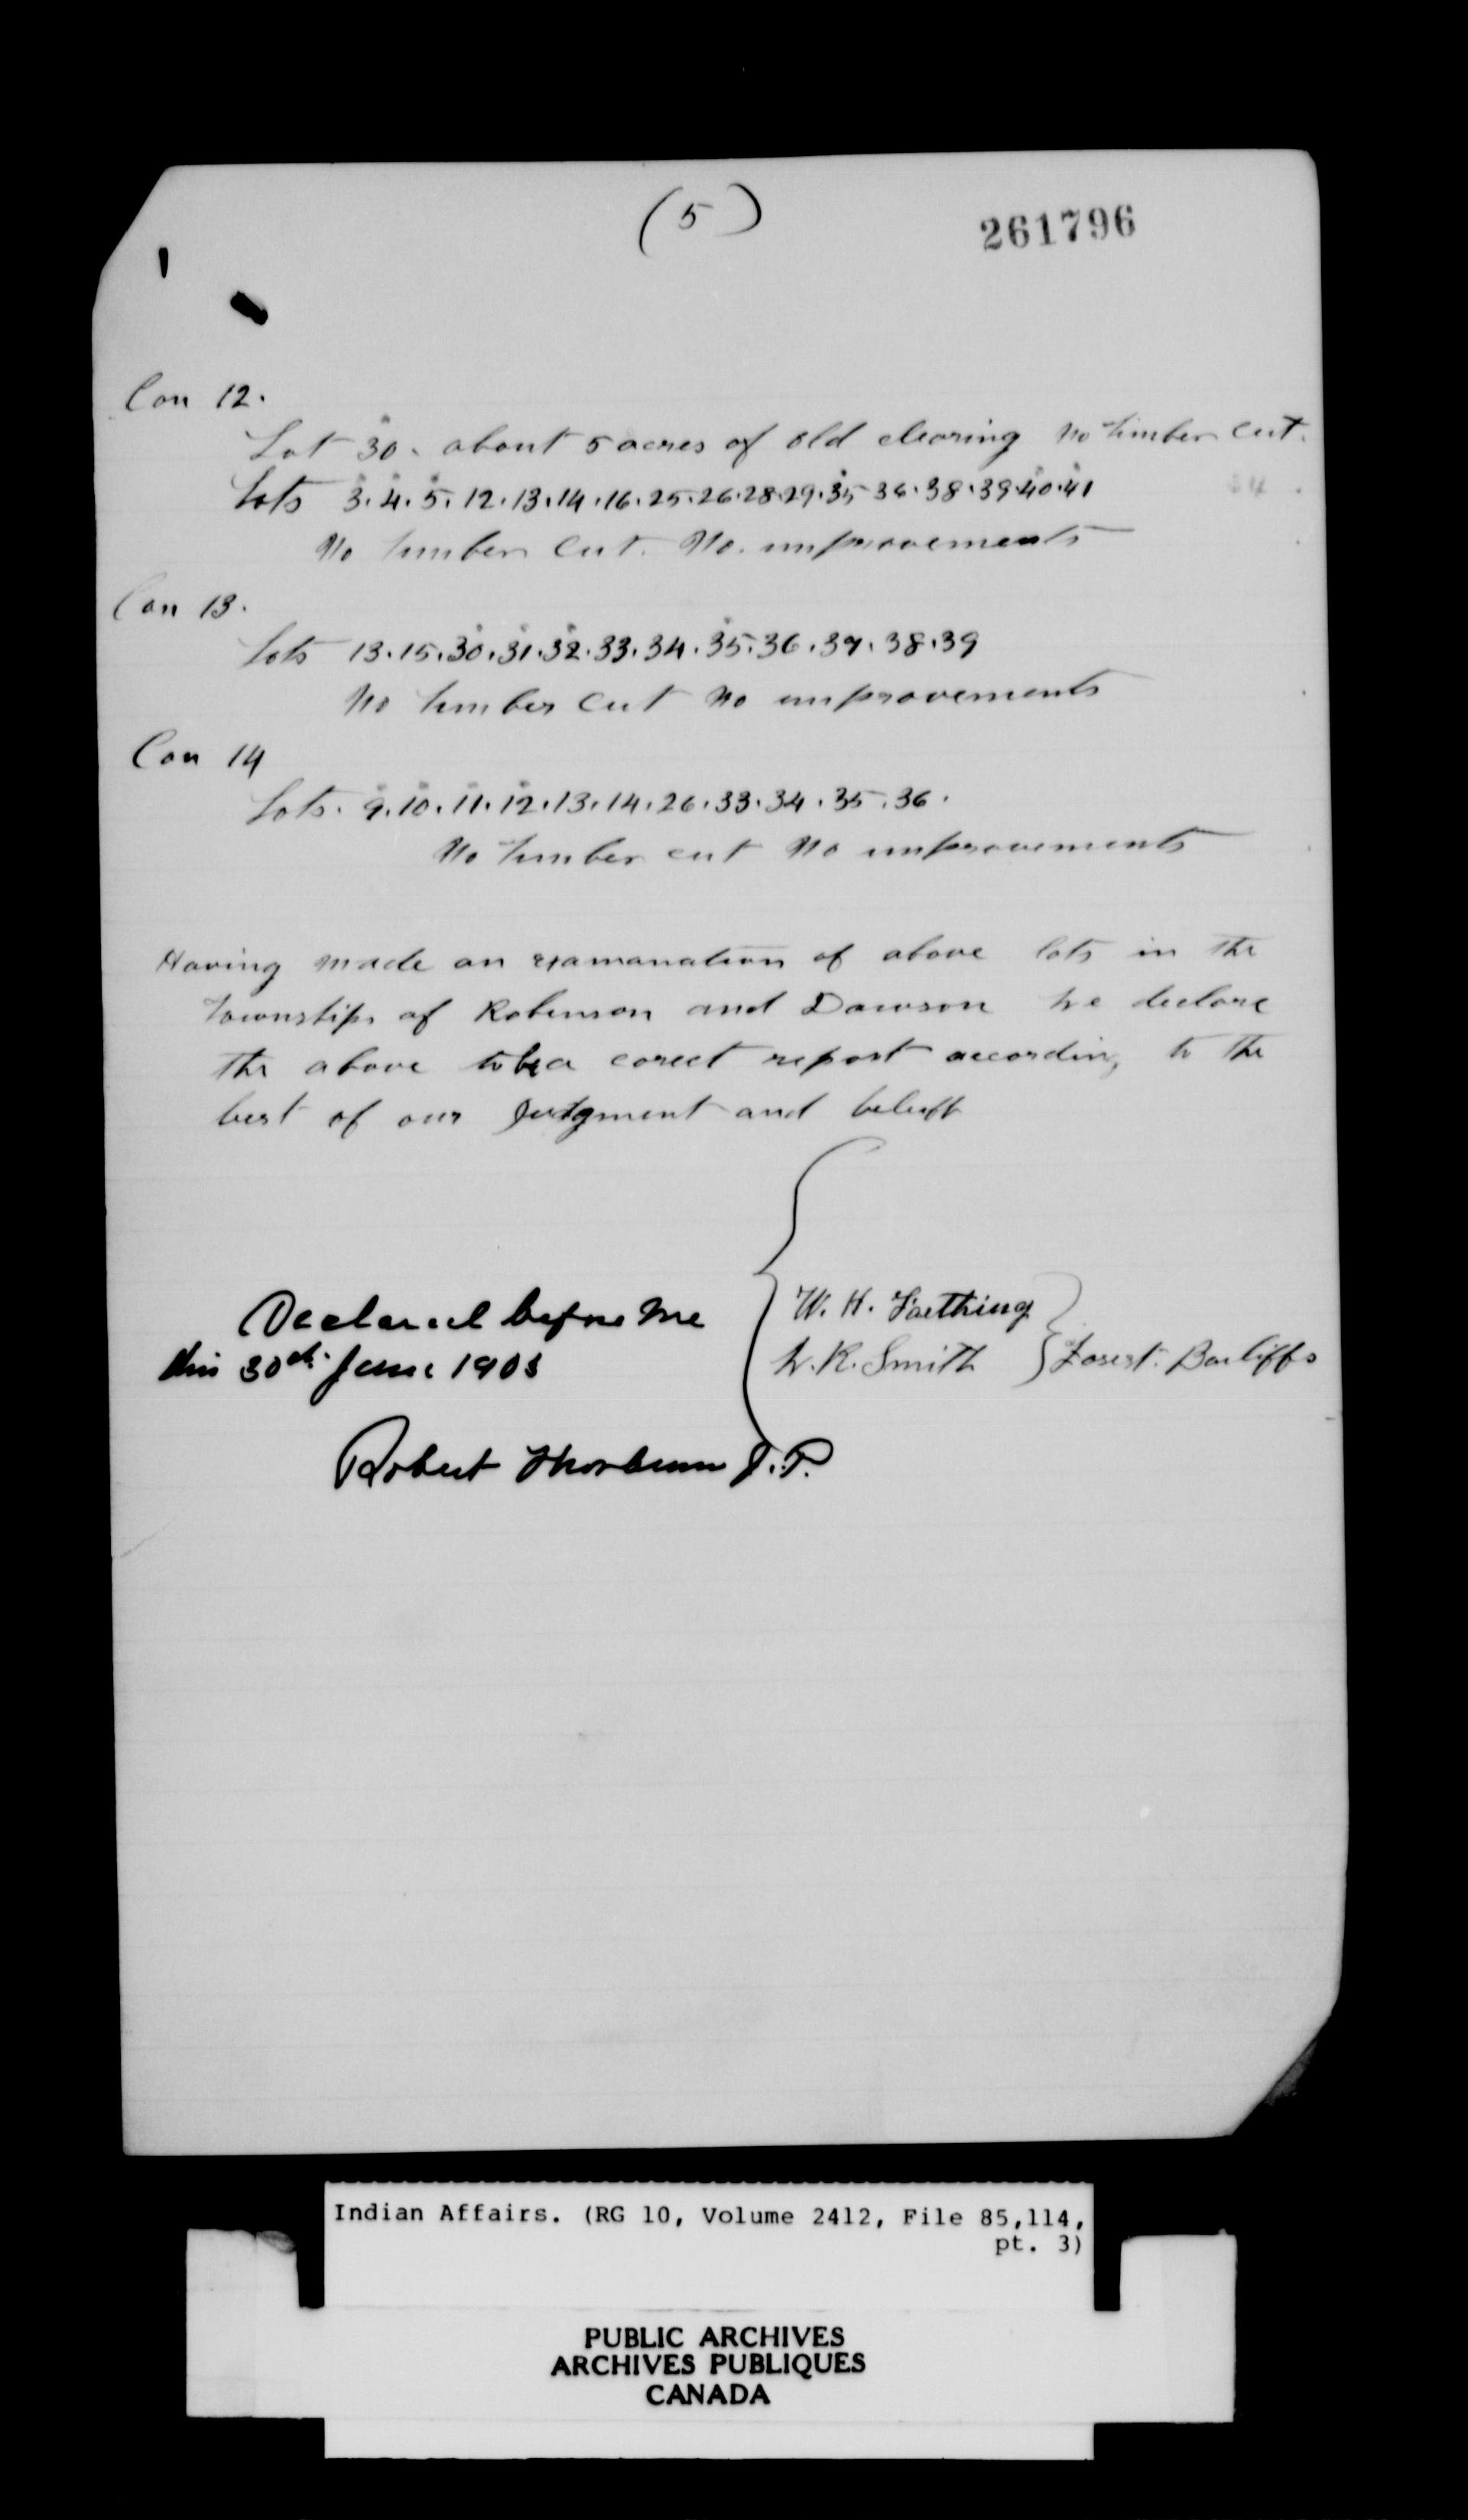 (5)
261796
Con 12.
Lot 30. about 5 acres of old clearing No timber cut.
Lots 3.4.5.12.13.14.16.25.26.28.29.35 36.38.39.40.41
No timber cut. No. improvements
Con 13.
Lots 13.15.30.31.32.33.34.35.36.37.38.39
No timber cut No improvements
Con 14
Lots. 9.10.11.12.13.14.26.33.34.35.36.
No timber cut No improvements
Having made an examanation of above lots in the
townships of Robinson and Dawson we declare
the above to be a corect report according to the
best of our Judgment and belieff
Declared before me
this 30th June 1903
W. H. Farthing
W. R. Smith
Forest. Bailiffs
Robert Thorburn J.P.
Indian Affairs. (RG 10, Volume 2412, File 85,114,
pt. 3)
PUBLIC ARCHIVES
ARCHIVES PUBLIQUES
CANADA